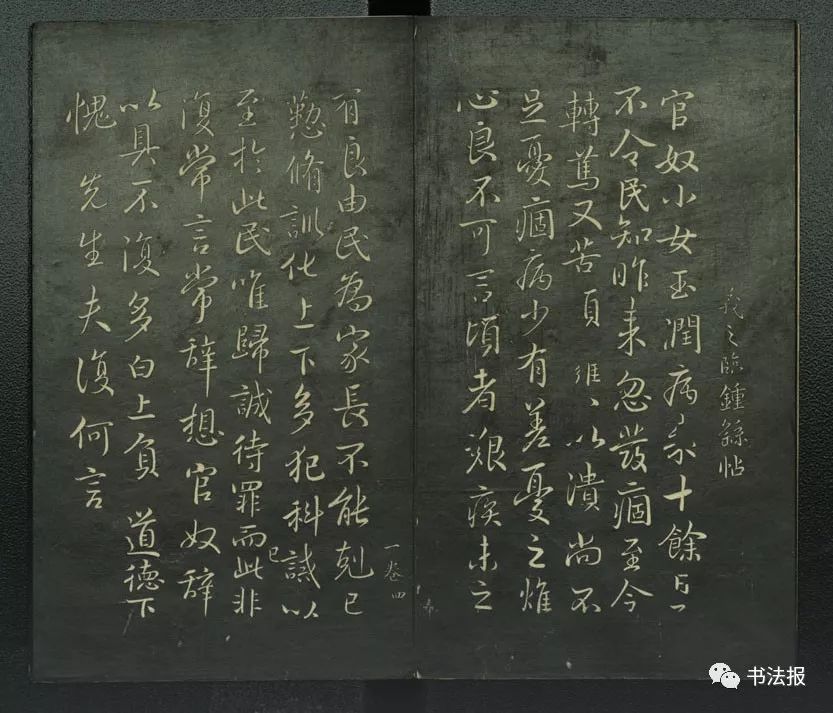 羲之臨鍾繇帖
官奴小女玉潤病來十餘日了
不令民知昨來忽發痼至今
轉篤又苦頭癰、以潰尚不
足憂痼病少有差憂之燋
心良不可言頃者艱疾未之
一卷四
有良由民為家長不能剋己
懃脩訓化上下多犯科誡以
至於此民唯歸誠待罪而已此非
復常言常辭想官奴辭
以具不復多白上負 道德下
愧 先生夫復何言
书法报